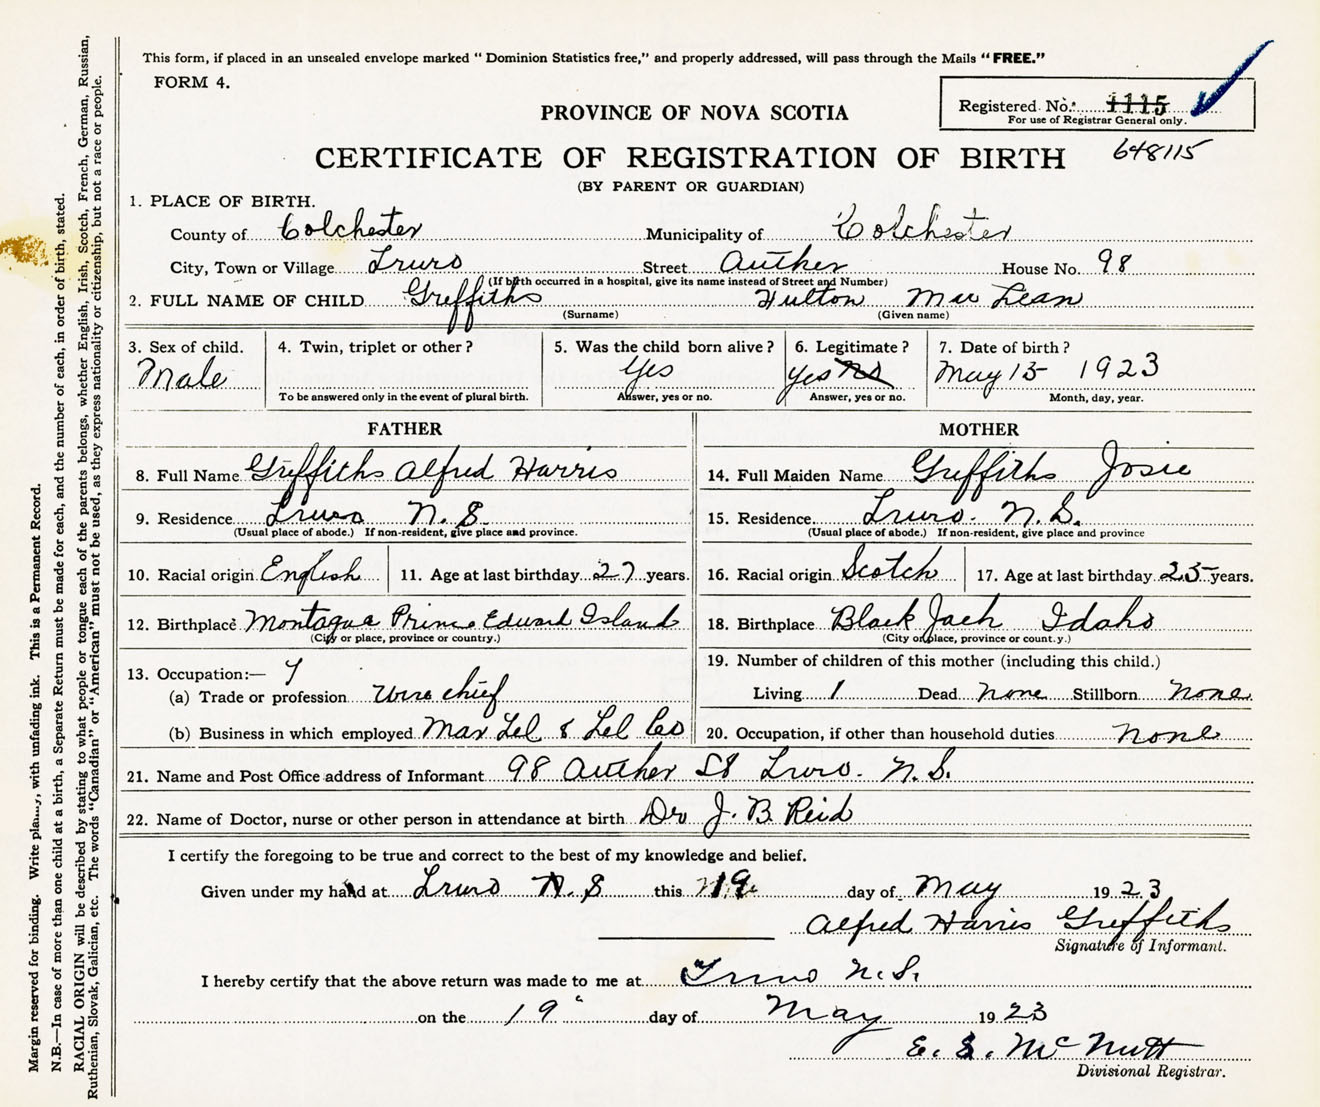 This form, if placed in an unsealed envelope marked "Dominion Statistics free," and properly addressed, will pass through the Mails "FREE."
FORM 4.
Registered No. 1115
For use of Registrar General only.
PROVINCE OF NOVA SCOTIA
648115
CERTIFICATE OF REGISTRATION OF BIRTH
(BY PARENT OR GUARDIAN)
1. PLACE OF BIRTH.
County of Colchester Municipality of Colchester
City, Town or Village Truro Street Auther House No. 98
(If birth occurred in a hospital, give its name instead of Street and Number)
2. FULL NAME OF CHILD Griffiths Fulton Mac Lean
(Surname) (Given name)
3. Sex of child. 4. Twin, triplet or other? 5. Was the child born alive? 6. Legitimate? 7. Date of birth?
Male Yes Yes No May 15 1923
To be answered only in the event of plural birth. Answer, yes or no. Answer, yes or no. Month, day, year.
FATHER MOTHER
8. Full Name Griffiths Alfred Harris 14. Full Maiden Name Griffiths Josie
9. Residence Truro N.S. 15. Residence Truro. N.S.
(Usual place of abode.) If non-resident, give place and province. (Usual place of abode.) If non-resident, give place and province
10. Racial origin English 11. Age at last birthday 27 years. 16. Racial origin Scotch 17. Age at last birthday 25 years.
12. Birthplace Montague Prince Edward Island 18. Birthplace Black Jack Idaho
(City or place, province or country.) (City or place, province or count.y.)
19. Number of children of this mother (including this child.)
13. Occupation:—
(a) Trade or profession Wire chief Living 1 Dead none Stillborn none
(b) Business in which employed Mar Tel & Tel Co 20. Occupation, if other than household duties none
21. Name and Post Office address of Informant 98 Auther St Truro. N.S.
22. Name of Doctor, nurse or other person in attendance at birth Dr J. B Reid
I certify the foregoing to be true and correct to the best of my knowledge and belief.
Given under my hand at Truro N.S this 19 day of May 1923
Alfred Harris Griffiths
Signature of Informant.
I hereby certify that the above return was made to me at Truro N.S.
on the 19" day of May 1923
E. S. McNutt
Divisional Registrar.
Margin reserved for binding. Write plainly, with unfading ink. This is a Permanent Record.
N.B.—In case of more than one child at a birth, a Separate Return must be made for each, and the number of each, in order of birth, stated.
RACIAL ORIGIN will be described by stating to what people or tongue each of the parents belongs, whether English, Irish, Scotch, French, German, Russian,
Ruthenian, Slovak, Galician, etc. The words "Canadian" or "American" must not be used, as they express nationality or citizenship, but not a race or people.